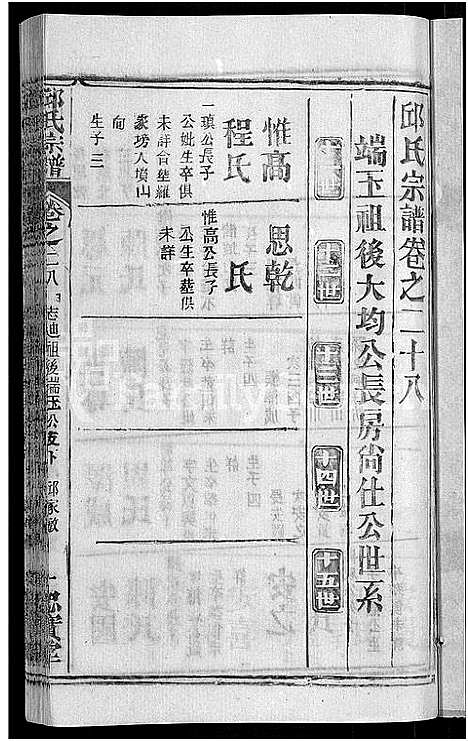 邱氏宗譜卷之二十八
端玉祖後大均公長房尙仕公世系
十三世
十四世
十五世
惟高
程氏
一瑱公長子
公妣生卒俱
未詳合塟羅
家塝人墳山
向
生子三
思乾
氏
惟高公長子
公生卒塟俱
未詳
邱氏宗譜
卷之二八
志迪祖後端玉公支下